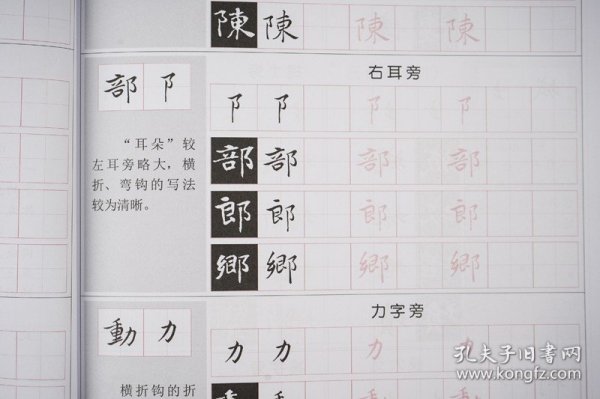 陳 陳 陳 陳
右耳旁
部 阝
阝 阝 阝 阝
“耳朵”较
左耳旁略大，横
折、弯钩的写法
较为清晰。
部 部 部 部
郎 郎 郎 郎
鄉 鄉 鄉 鄉
力字旁
動 力
力 力 力 力
横折钩的折
孔夫子旧书网
www.kongfz.com